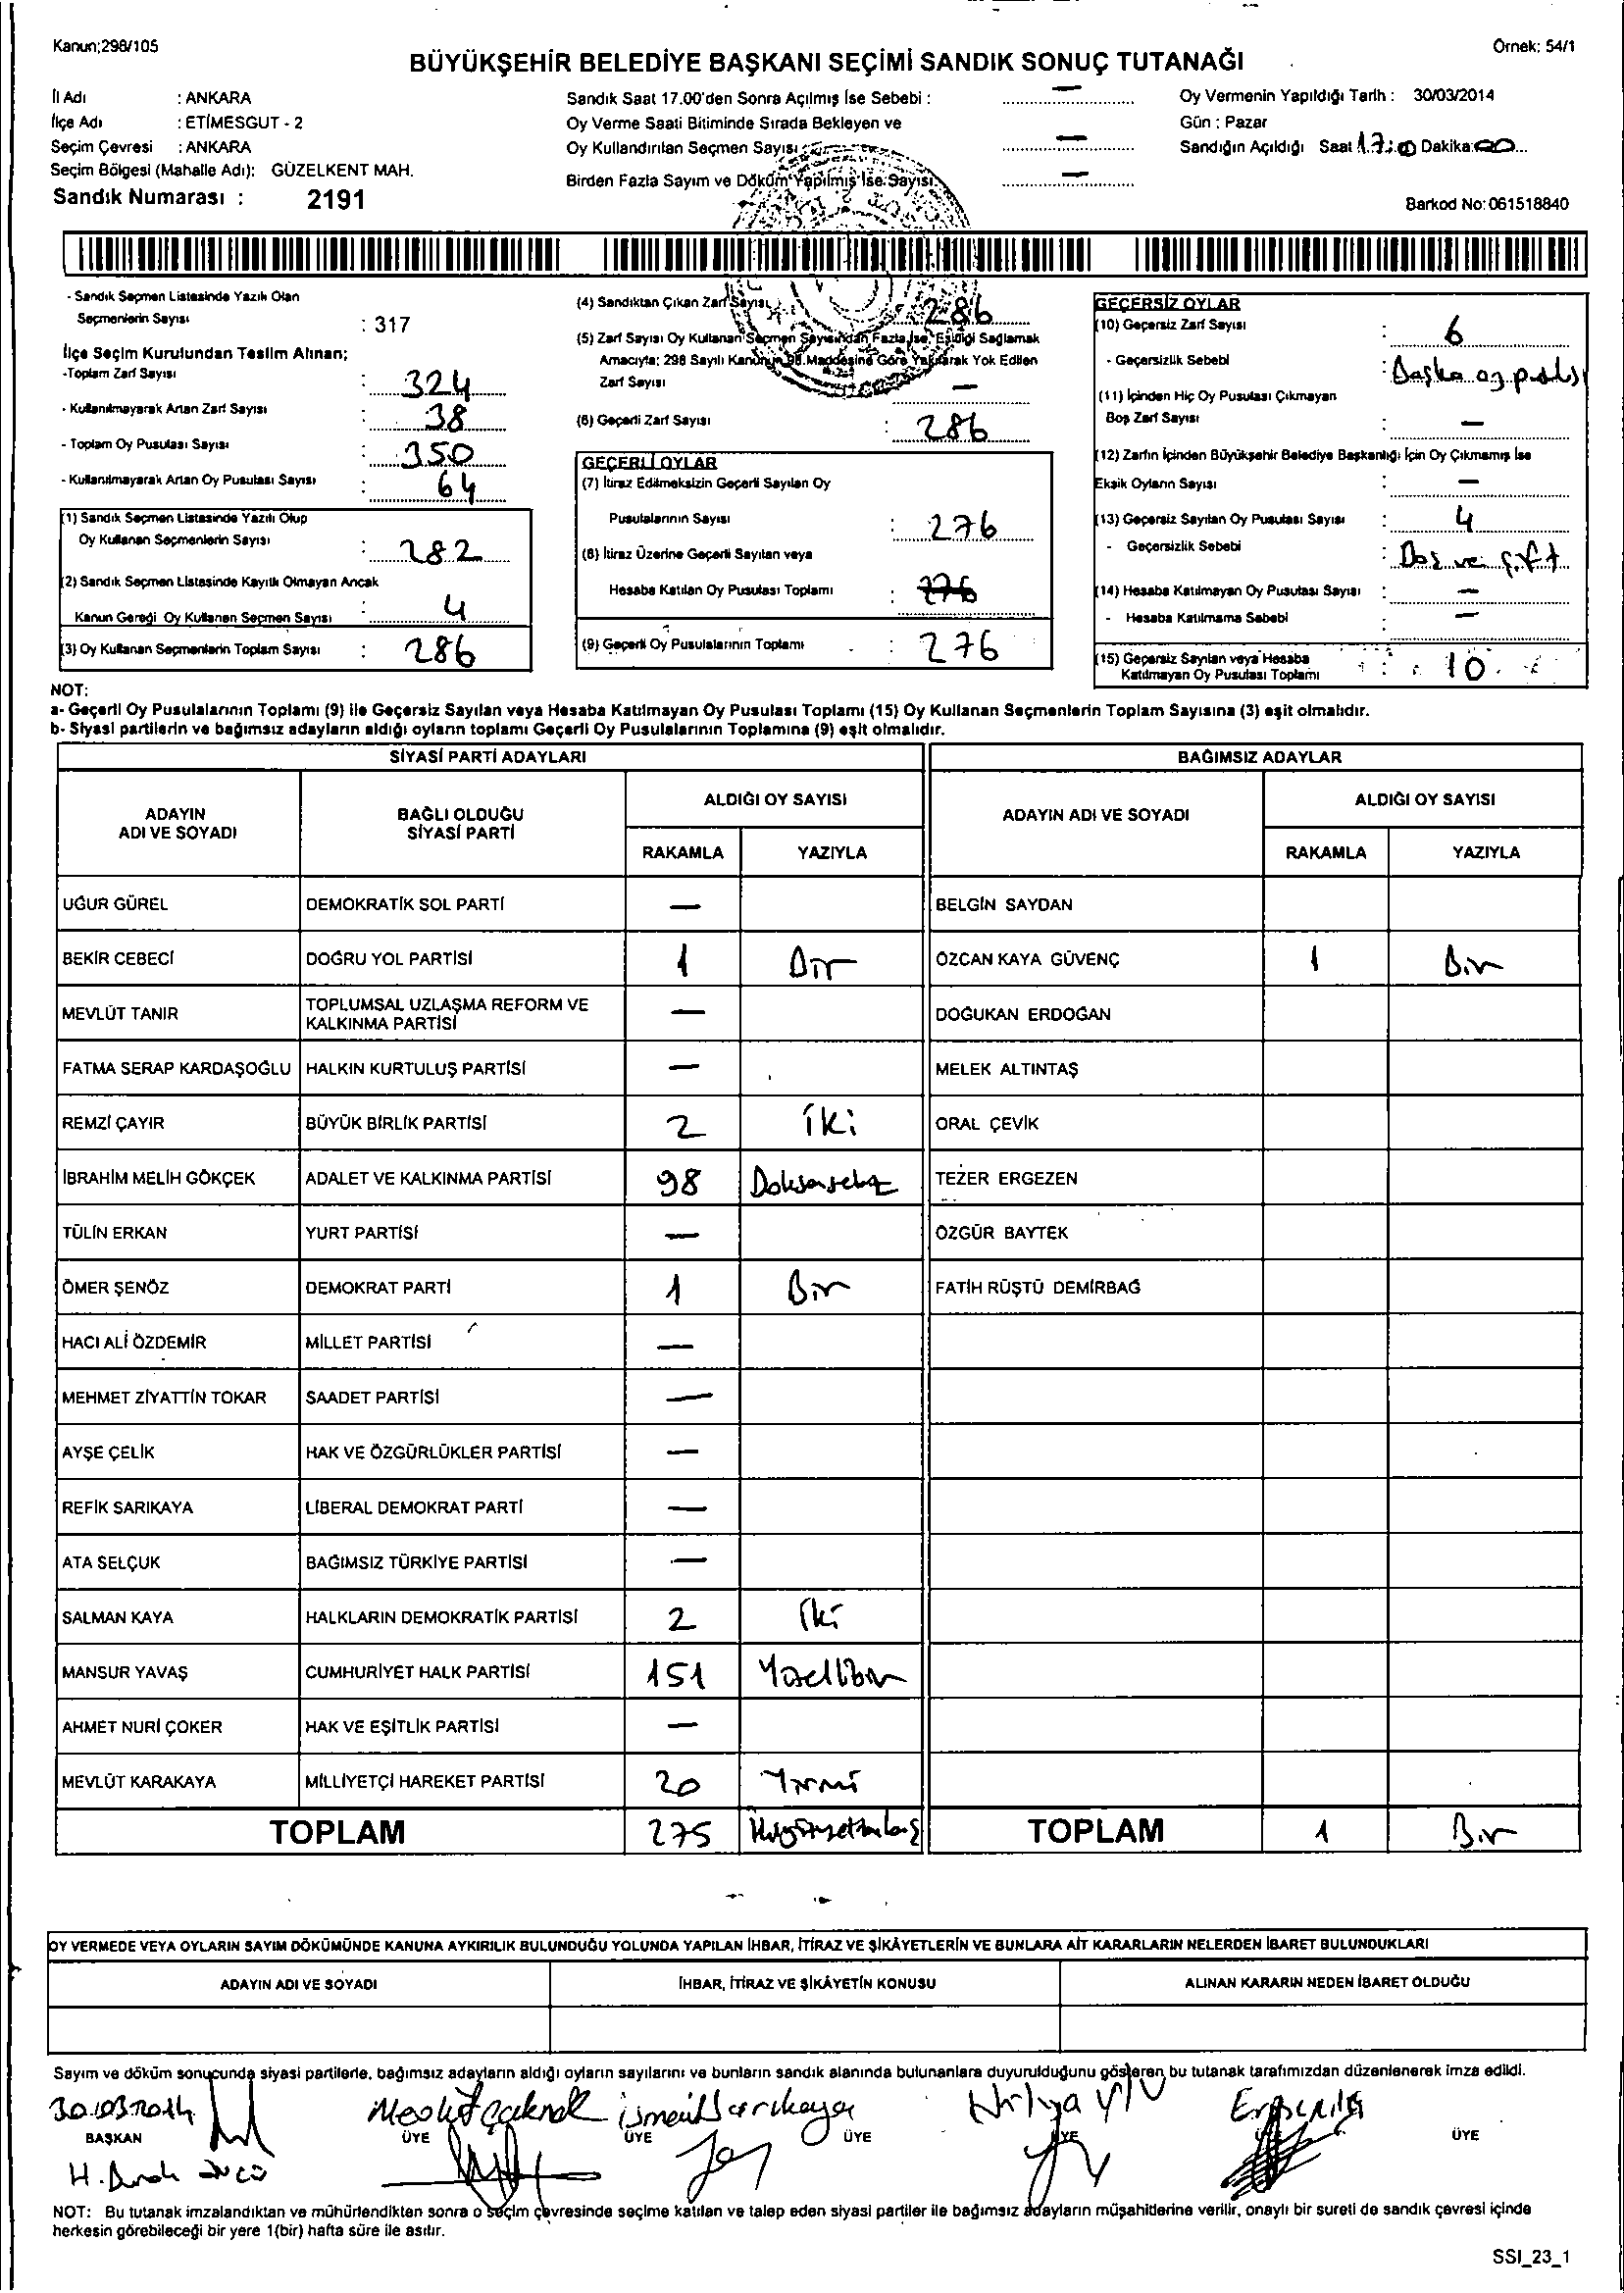 Kanun;298/105
Örnek: 54/1
BÜYÜKŞEHİR BELEDİYE BAŞKANI SEÇİMİ SANDIK SONUÇ TUTANAĞI
İl Adı : ANKARA
İlçe Adı : ETİMESGUT - 2
Seçim Çevresi : ANKARA
Seçim Bölgesi (Mahalle Adı): GÜZELKENT MAH.
Sandık Numarası : 2191
Sandık Saat 17.00'den Sonra Açılmış İse Sebebi : —
Oy Verme Saati Bitiminde Sırada Bekleyen ve
Oy Kullandırılan Seçmen Sayısı : —
Birden Fazla Sayım ve Döküm Yapılmış İse Sayısı: —
Oy Vermenin Yapıldığı Tarih : 30/03/2014
Gün : Pazar
Sandığın Açıldığı Saat 17:00 Dakika:00
Barkod No: 061518840
- Sandık Seçmen Listesinde Yazılı Olan
Seçmenlerin Sayısı : 317
İlçe Seçim Kurulundan Teslim Alınan;
-Toplam Zarf Sayısı : 324
- Kullanılmayarak Artan Zarf Sayısı : 38
- Toplam Oy Pusulası Sayısı : 350
- Kullanılmayarak Artan Oy Pusulası Sayısı : 64
(1) Sandık Seçmen Listesinde Yazılı Olup
Oy Kullanan Seçmenlerin Sayısı : 282
(2) Sandık Seçmen Listesinde Kayıtlı Olmayan Ancak
Kanun Gereği Oy Kullanan Seçmen Sayısı : 4
(3) Oy Kullanan Seçmenlerin Toplam Sayısı : 286
(4) Sandıktan Çıkan Zarf Sayısı : 286
(5) Zarf Sayısı Oy Kullanan Seçmen Sayısından Fazla İse, Eşitliği Sağlamak
Amacıyla; 298 Sayılı Kanunun 98.Maddesine Göre Yakılarak Yok Edilen
Zarf Sayısı —
(6) Geçerli Zarf Sayısı : 286
GEÇERLİ OYLAR
(7) İtiraz Edilmeksizin Geçerli Sayılan Oy
Pusulalarının Sayısı : 276
(8) İtiraz Üzerine Geçerli Sayılan veya
Hesaba Katılan Oy Pusulası Toplamı : 276
(9) Geçerli Oy Pusulalarının Toplamı : 276
GEÇERSİZ OYLAR
(10) Geçersiz Zarf Sayısı : 6
- Geçersizlik Sebebi : Başka oy pusulası
(11) İçinden Hiç Oy Pusulası Çıkmayan
Boş Zarf Sayısı : —
(12) Zarfın İçinden Büyükşehir Belediye Başkanlığı İçin Oy Çıkmamış İse
Eksik Oyların Sayısı : —
(13) Geçersiz Sayılan Oy Pusulası Sayısı : 4
- Geçersizlik Sebebi : Boş ve çift
(14) Hesaba Katılmayan Oy Pusulası Sayısı : —
- Hesaba Katılmama Sebebi : —
(15) Geçersiz Sayılan veya Hesaba
Katılmayan Oy Pusulası Toplamı : 10
NOT:
a- Geçerli Oy Pusulalarının Toplamı (9) ile Geçersiz Sayılan veya Hesaba Katılmayan Oy Pusulası Toplamı (15) Oy Kullanan Seçmenlerin Toplam Sayısına (3) eşit olmalıdır.
b- Siyasi partilerin ve bağımsız adayların aldığı oyların toplamı Geçerli Oy Pusulalarının Toplamına (9) eşit olmalıdır.
SİYASİ PARTİ ADAYLARI BAĞIMSIZ ADAYLAR
ADAYIN ADI VE SOYADI BAĞLI OLDUĞU SİYASİ PARTİ ALDIĞI OY SAYISI ADAYIN ADI VE SOYADI ALDIĞI OY SAYISI
RAKAMLA YAZIYLA RAKAMLA YAZIYLA
UĞUR GÜREL DEMOKRATİK SOL PARTİ — BELGİN SAYDAN
BEKİR CEBECİ DOĞRU YOL PARTİSİ 1 Bir ÖZCAN KAYA GÜVENÇ 1 Bir
MEVLÜT TANIR TOPLUMSAL UZLAŞMA REFORM VE KALKINMA PARTİSİ — DOĞUKAN ERDOĞAN
FATMA SERAP KARDAŞOĞLU HALKIN KURTULUŞ PARTİSİ — MELEK ALTINTAŞ
REMZİ ÇAYIR BÜYÜK BİRLİK PARTİSİ 2 İki ORAL ÇEVİK
İBRAHİM MELİH GÖKÇEK ADALET VE KALKINMA PARTİSİ 98 Doksansekiz TEZER ERGEZEN
TÜLİN ERKAN YURT PARTİSİ — ÖZGÜR BAYTEK
ÖMER ŞENÖZ DEMOKRAT PARTİ 1 Bir FATİH RÜŞTÜ DEMİRBAĞ
HACI ALİ ÖZDEMİR MİLLET PARTİSİ —
MEHMET ZİYATTİN TOKAR SAADET PARTİSİ —
AYŞE ÇELİK HAK VE ÖZGÜRLÜKLER PARTİSİ —
REFİK SARIKAYA LİBERAL DEMOKRAT PARTİ —
ATA SELÇUK BAĞIMSIZ TÜRKİYE PARTİSİ —
SALMAN KAYA HALKLARIN DEMOKRATİK PARTİSİ 2 İki
MANSUR YAVAŞ CUMHURİYET HALK PARTİSİ 151 Yüzellibir
AHMET NURİ ÇOKER HAK VE EŞİTLİK PARTİSİ —
MEVLÜT KARAKAYA MİLLİYETÇİ HAREKET PARTİSİ 20 Yirmi
TOPLAM 275 İkiyüzyetmişbeş TOPLAM 1 Bir
OY VERMEDE VEYA OYLARIN SAYIM DÖKÜMÜNDE KANUNA AYKIRILIK BULUNDUĞU YOLUNDA YAPILAN İHBAR, İTİRAZ VE ŞİKÂYETLERİN VE BUNLARA AİT KARARLARIN NELERDEN İBARET BULUNDUKLARI
ADAYIN ADI VE SOYADI İHBAR, İTİRAZ VE ŞİKÂYETİN KONUSU ALINAN KARARIN NEDEN İBARET OLDUĞU
Sayım ve döküm sonucunda siyasi partilerle, bağımsız adayların aldığı oyların sayılarını ve bunların sandık alanında bulunanlara duyurulduğunu gösteren bu tutanak tarafımızdan düzenlenerek imza edildi.
30.03.2014 Mevlüt İsmail Sarıkaya Hülya
BAŞKAN ÜYE ÜYE ÜYE ÜYE ÜYE ÜYE
NOT: Bu tutanak imzalandıktan ve mühürlendikten sonra o seçim çevresinde seçime katılan ve talep eden siyasi partiler ile bağımsız adayların müşahitlerine verilir, onaylı bir sureti de sandık çevresi içinde
herkesin görebileceği bir yere 1(bir) hafta süre ile asılır.
SSI_23_1